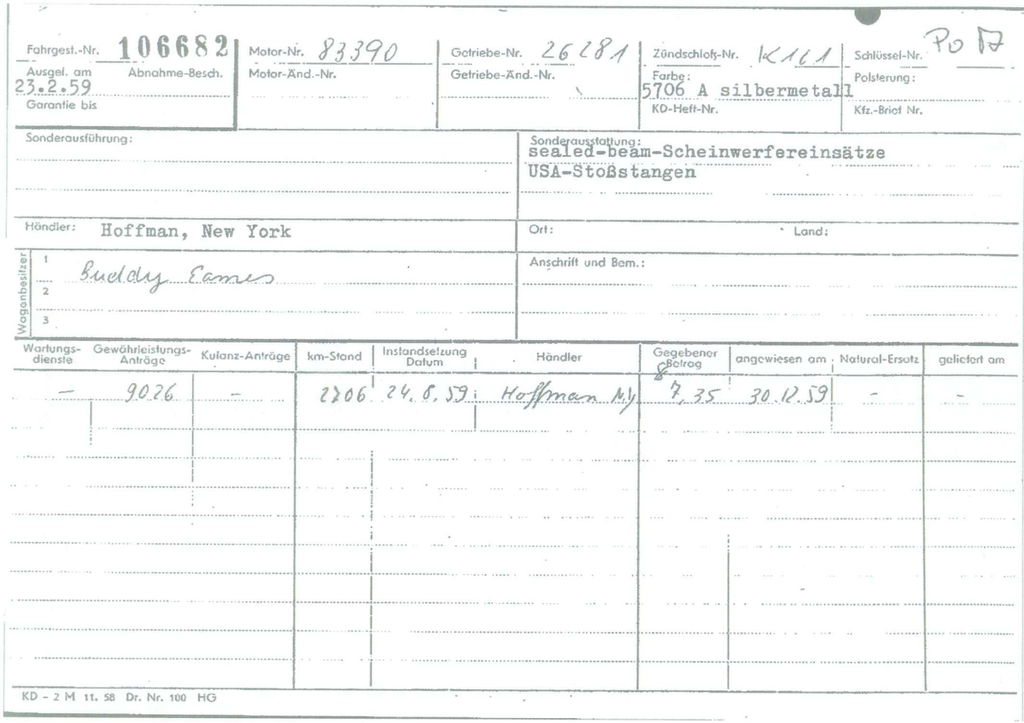 Fahrgest.-Nr. 106682 Motor-Nr. 83390 Getriebe-Nr. 26281 Zündschloß-Nr. K161 Schlüssel-Nr.
Ausgel. am Abnahme-Besch. Motor-Änd.-Nr. Getriebe-Änd.-Nr. Farbe: Polsterung:
23.2.59 5706 A silbermetall
Garantie bis KD-Heft-Nr. Kfz.-Brief Nr.
Sonderausführung: Sonderausstattung:
sealed-beam-Scheinwerfereinsätze
USA-Stoßstangen
Händler: Hoffman, New York Ort: Land:
Wagenbesitzer 1 Buddy Eames Anschrift und Bem.:
2
3
Wartungs-dienste Gewährleistungs-Anträge Kulanz-Anträge km-Stand Instandsetzung Datum Händler Gegebener Betrag angewiesen am Natural-Ersatz geliefert am
– 9026 – 24.8.59 Hoffman N.Y 7,35 30.12.59 – –
KD – 2 M 11. 58 Dr. Nr. 100 HG